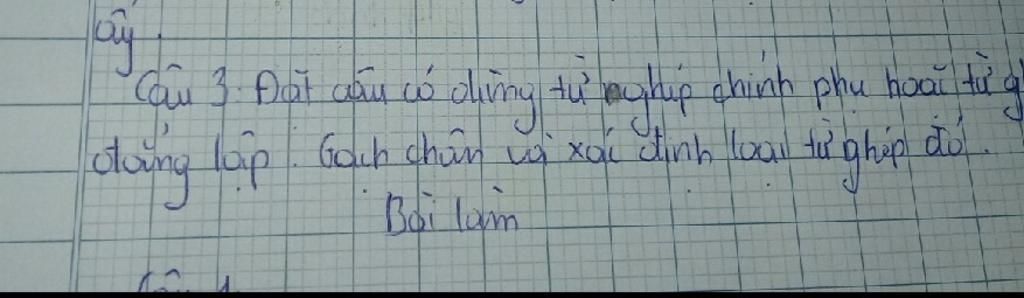 ấy.
Câu 3: Đặt câu có dùng từ nghép chính phụ hoặc từ g
đẳng lập. Gạch chân và xác định loại từ ghép đó.
Bài làm